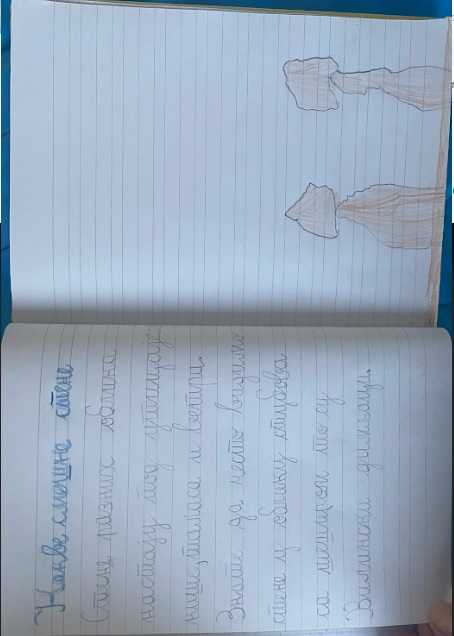 Какве смешне стене
Стене разних облика
настају под утицајем
кише, таласа и ветра.
Знали да често видимо
стене у облику стубова
са шеширом то су
Вилински димњаци.